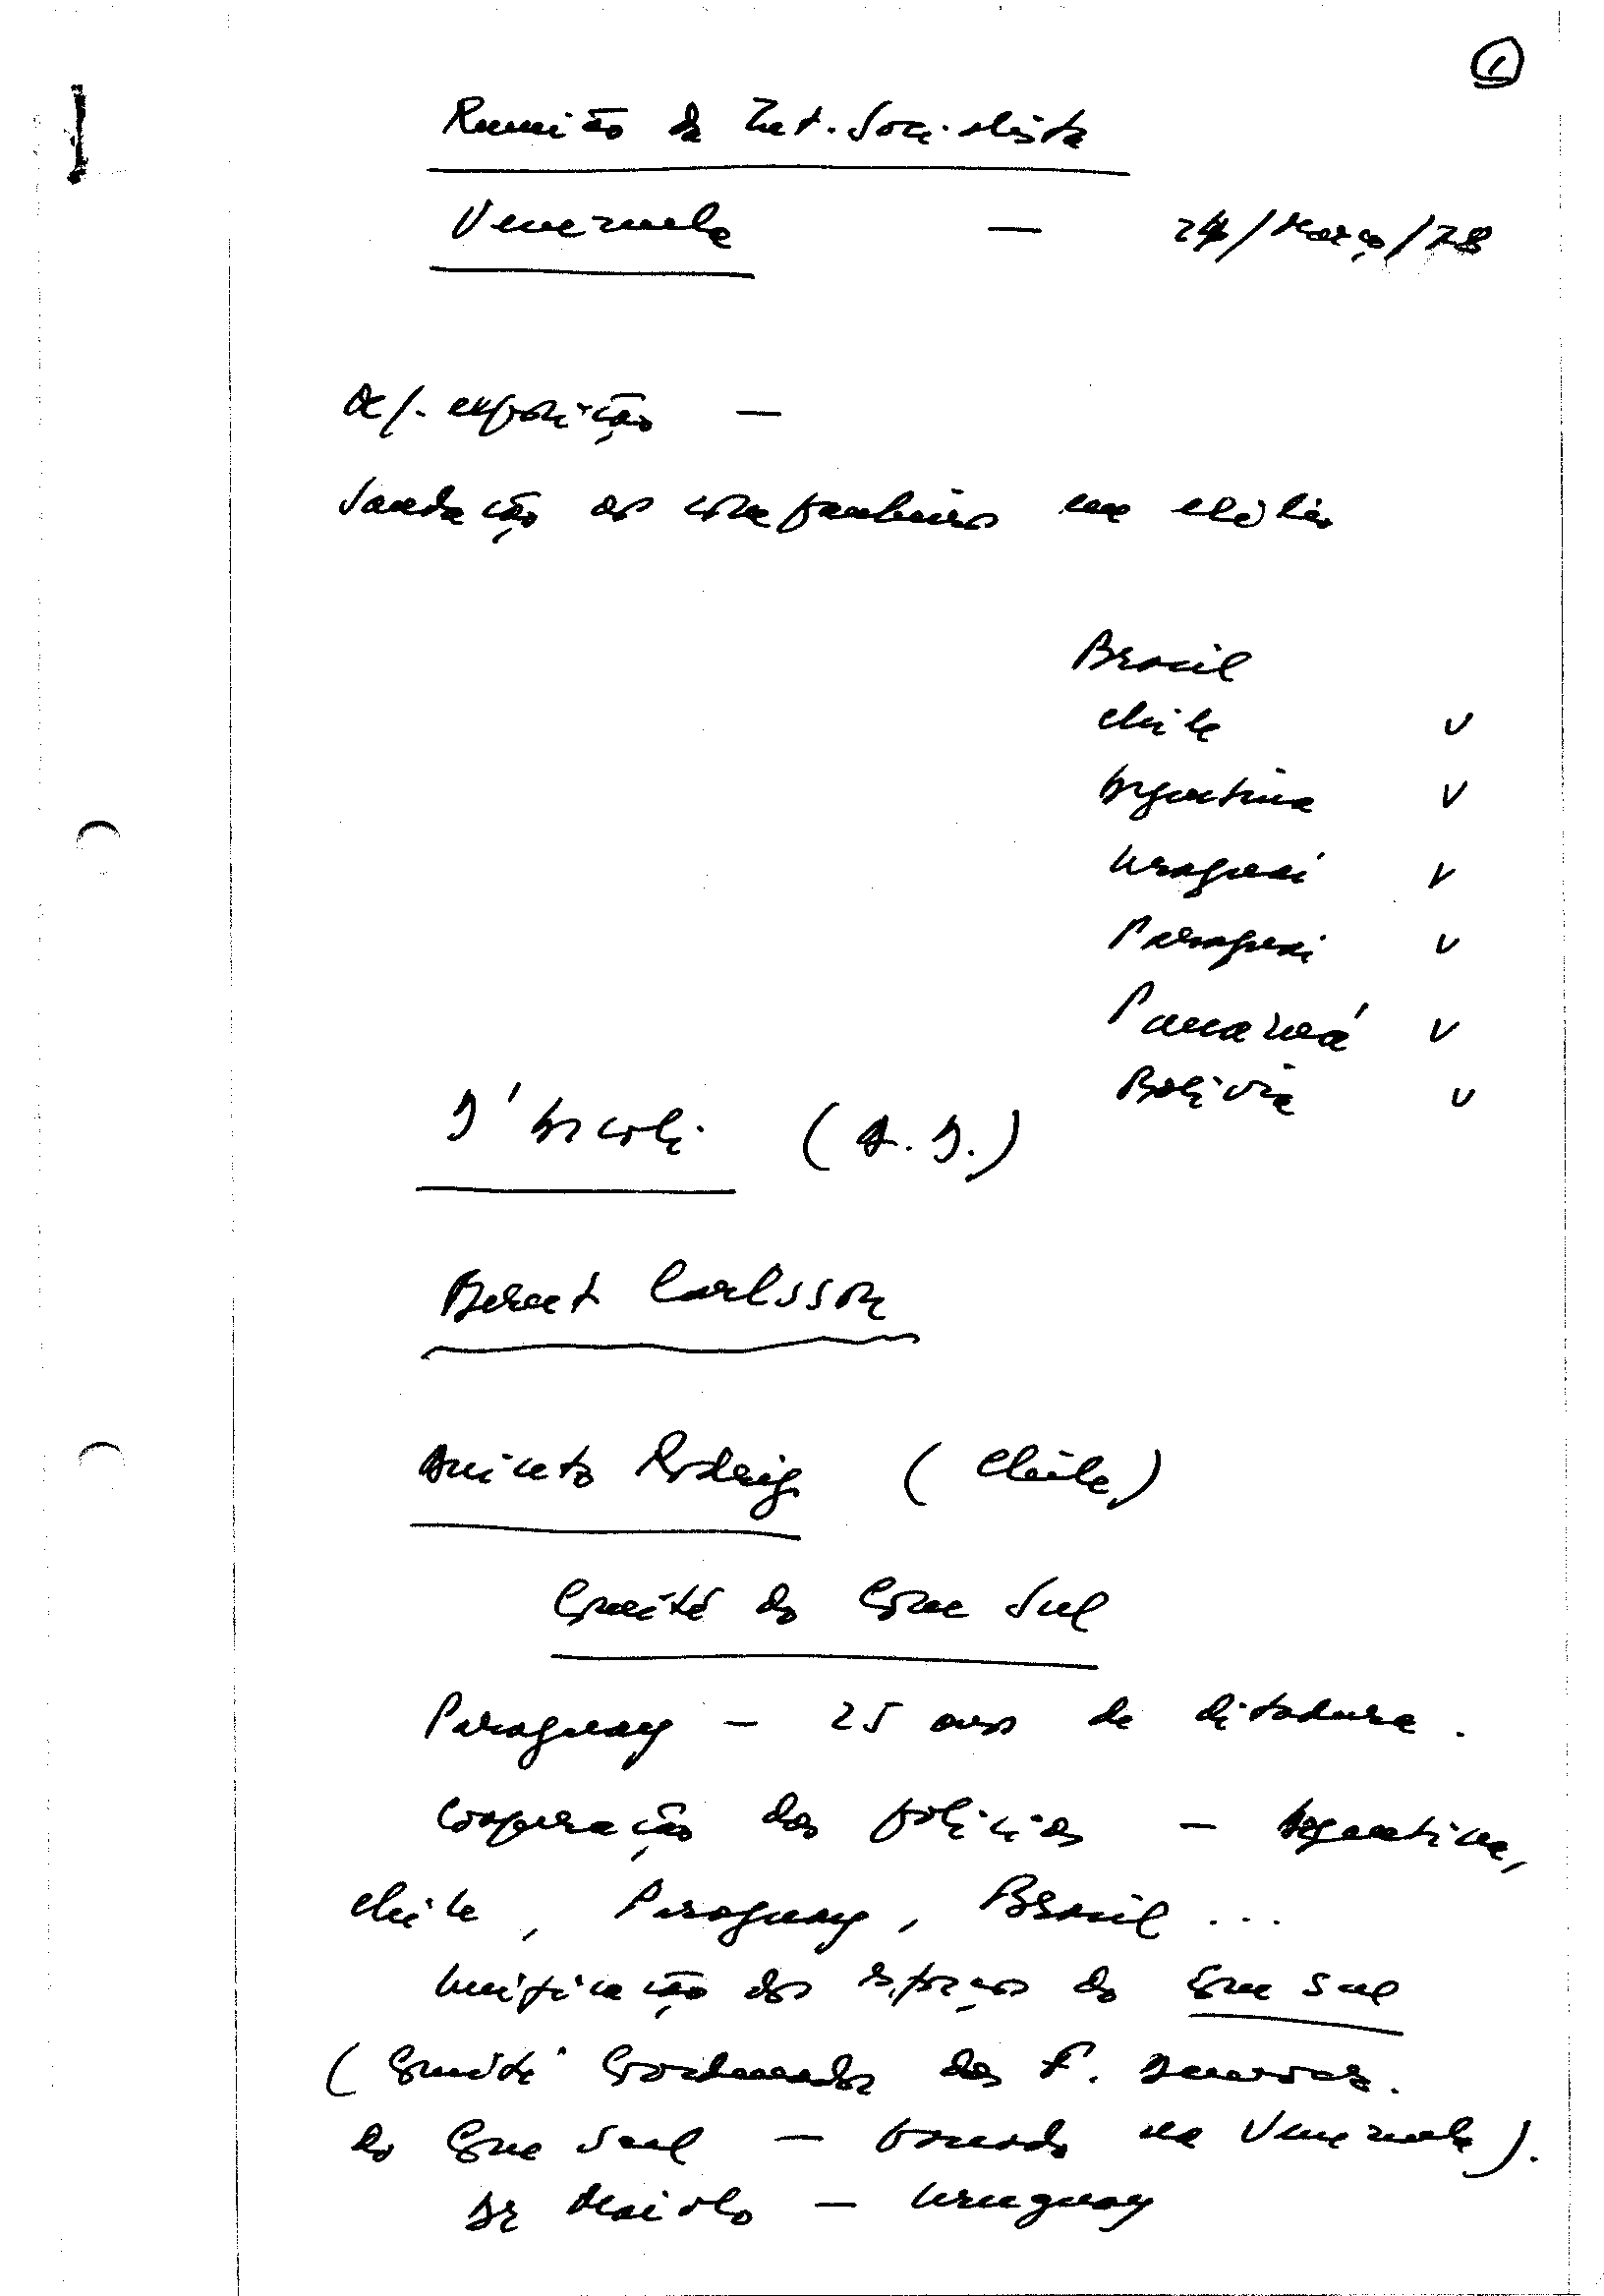 1
Reunião da Int. Socialista
Venezuela — 24/Março/78
exposição —
Saudação aos companheiros
Brasil
Chile v
Argentina v
Uruguai v
Paraguai v
Panamá v
Bolívia v
D'Ascoli (A.D.)
Bernt Carlsson
Aniceto Rodrig. (Chile)
Comité do Cone Sul
Paraguay — 25 anos de ditadura.
Cooperação das polícias — Argentina,
Chile, Paraguay, Brasil ...
Unificação dos esforços do Cone Sul
(Comité Coordenador das F. Democrat.
do Cone Sul — formado na Venezuela).
Dr — Uruguay